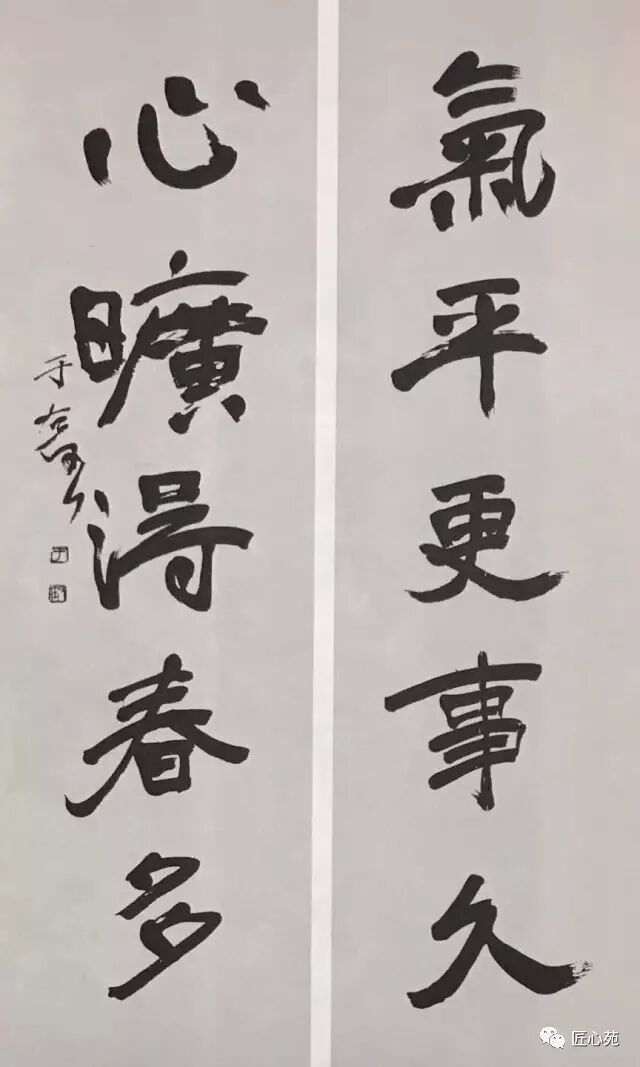 氣平更事久
心曠得春多
于
匠心苑